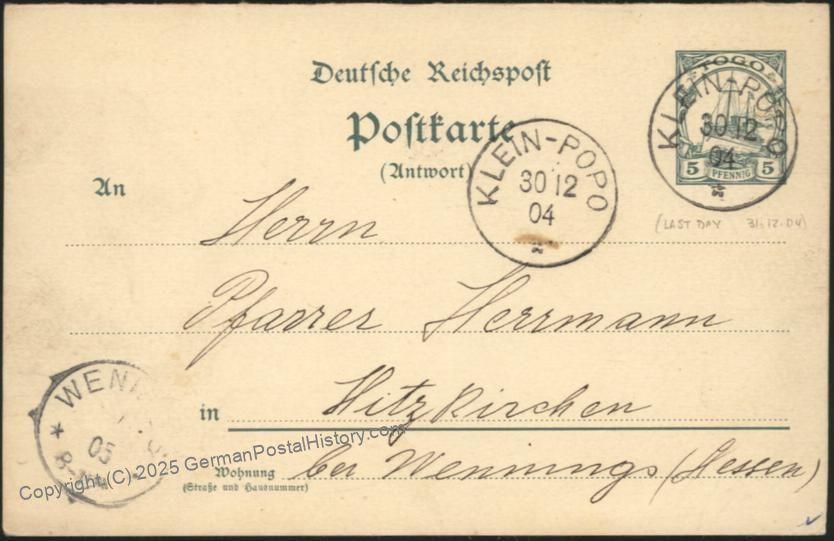 Deutsche Reichspost
Postkarte
(Antwort)
TOGO
5 PFENNIG 5
KLEIN-POPO
30 12
04
KLEIN-POPO
30 12
04
(LAST DAY 31.12.04)
An
Herrn
Pfarrer Herrmann
in Hitzkirchen
Wohnung bei Wennings (Hessen)
(Straße und Hausnummer)
05
Copyright (C) 2025 GermanPostalHistory.com